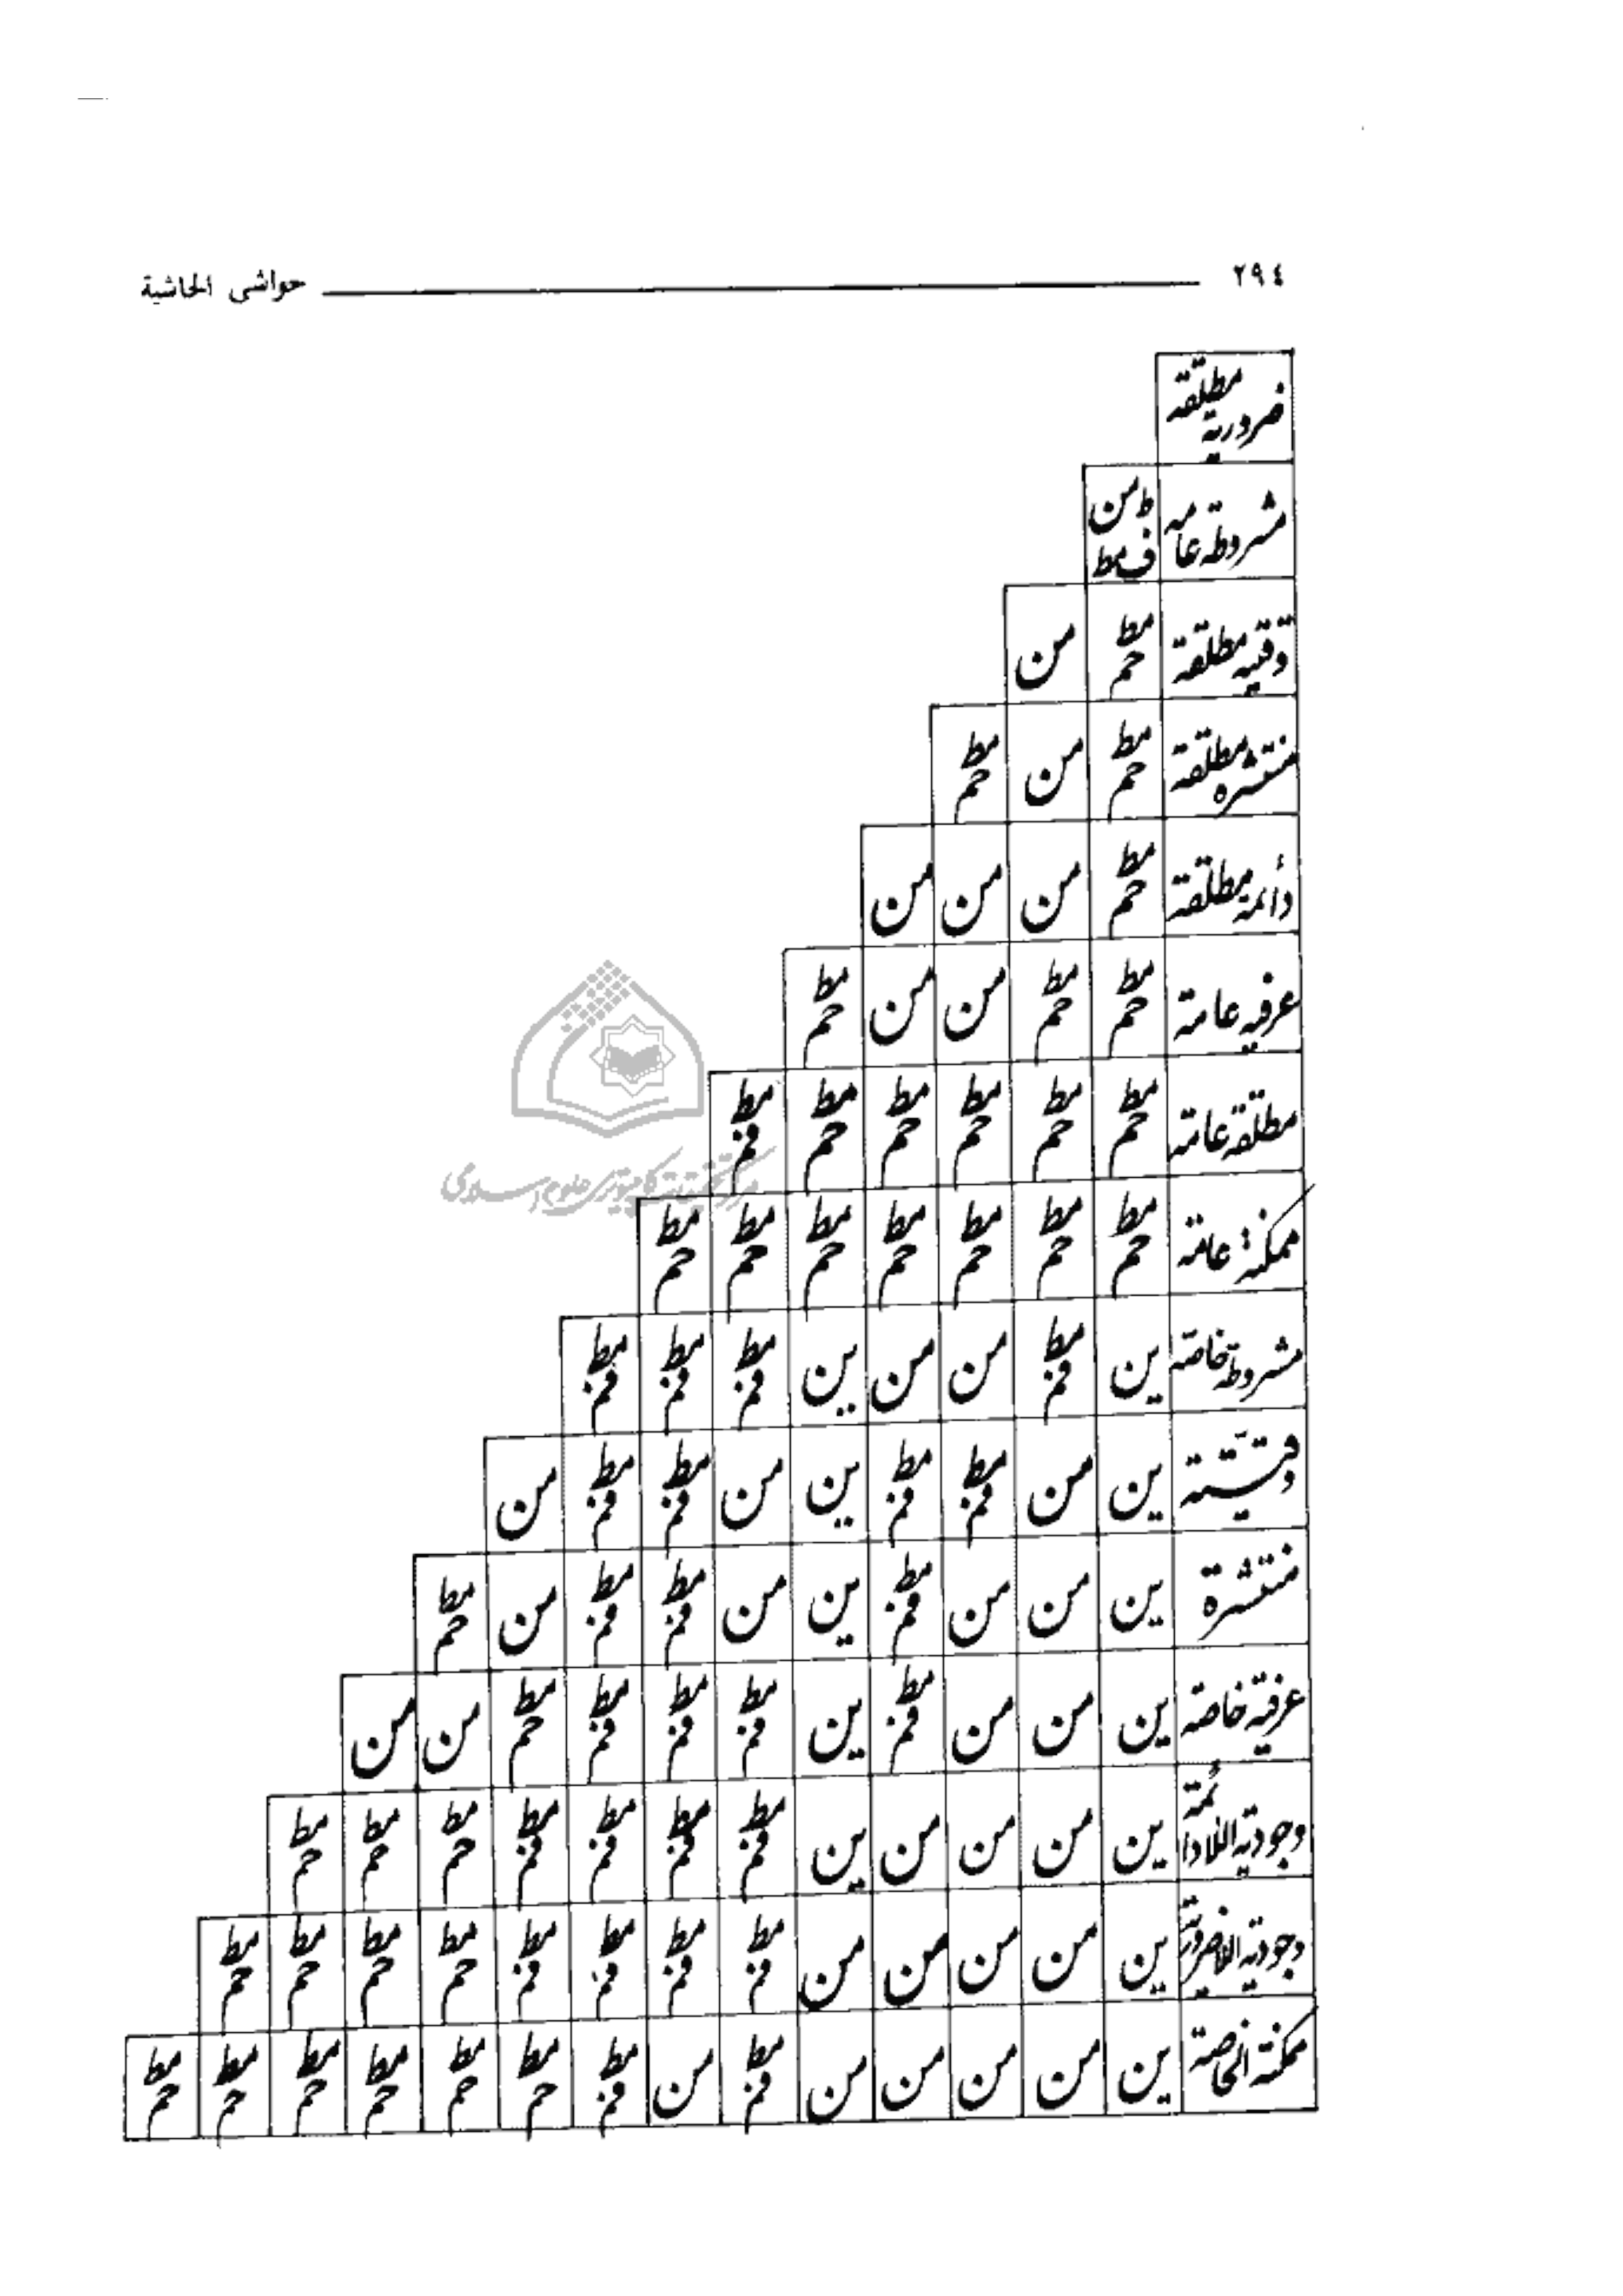 ٢٩٤ حواشى الحاشية
ضرورية مطلقة
مشروطة عامه ط من ف مط
وقتيه مطلقة مط حم من
منتشره مطلقة مط حم من مط حم
دائمة مطلقة مط حم من من من
عرفيه عامة مط حم مط حم من من مط حم
مطلقة عامة مط حم مط حم مط حم مط حم مط حم مط فم
ممكنة عامة مط حم مط حم مط حم مط حم مط حم مط حم مط حم
مشروطة خاصه ين مط فم من من ين مط فم مط فم مط فم
وقتية ين من مط فم مط فم ين من مط فم مط فم من
منتشرة ين من من مط فم ين من مط فم مط فم من مط حم
عرفية خاصة ين من من مط فم ين مط فم مط فم مط فم مط حم من من
وجودية اللادائمة ين من من من ين مط فم مط فم مط فم مط فم مط حم مط حم مط حم
وجودية اللاضرورية ين من من من من مط فم مط فم مط فم مط فم مط حم مط حم مط حم مط حم
ممكنة الخاصة ين من من من من مط فم من مط فم مط حم مط حم مط حم مط حم مط حم مط حم
مركز تحقيقات كامپيوترى علوم اسلامى